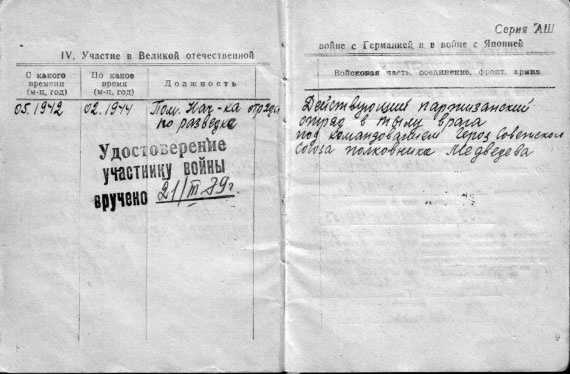 IV. Участие в Великой отечественной
С какого времени (м-ц, год)
По какое время (м-ц, год)
Должность
05.1942
02.1944
Пом. Нач-ка отряда
по разведке
Удостоверение
участнику войны
вручено 21/III 89г.
Серия АШ
войне с Германией и в войне с Японией
Войсковая часть, соединение, фронт, армия
Действующий партизанский
отряд в тылу врага
под командованием Героя Советского
Союза полковника Медведева